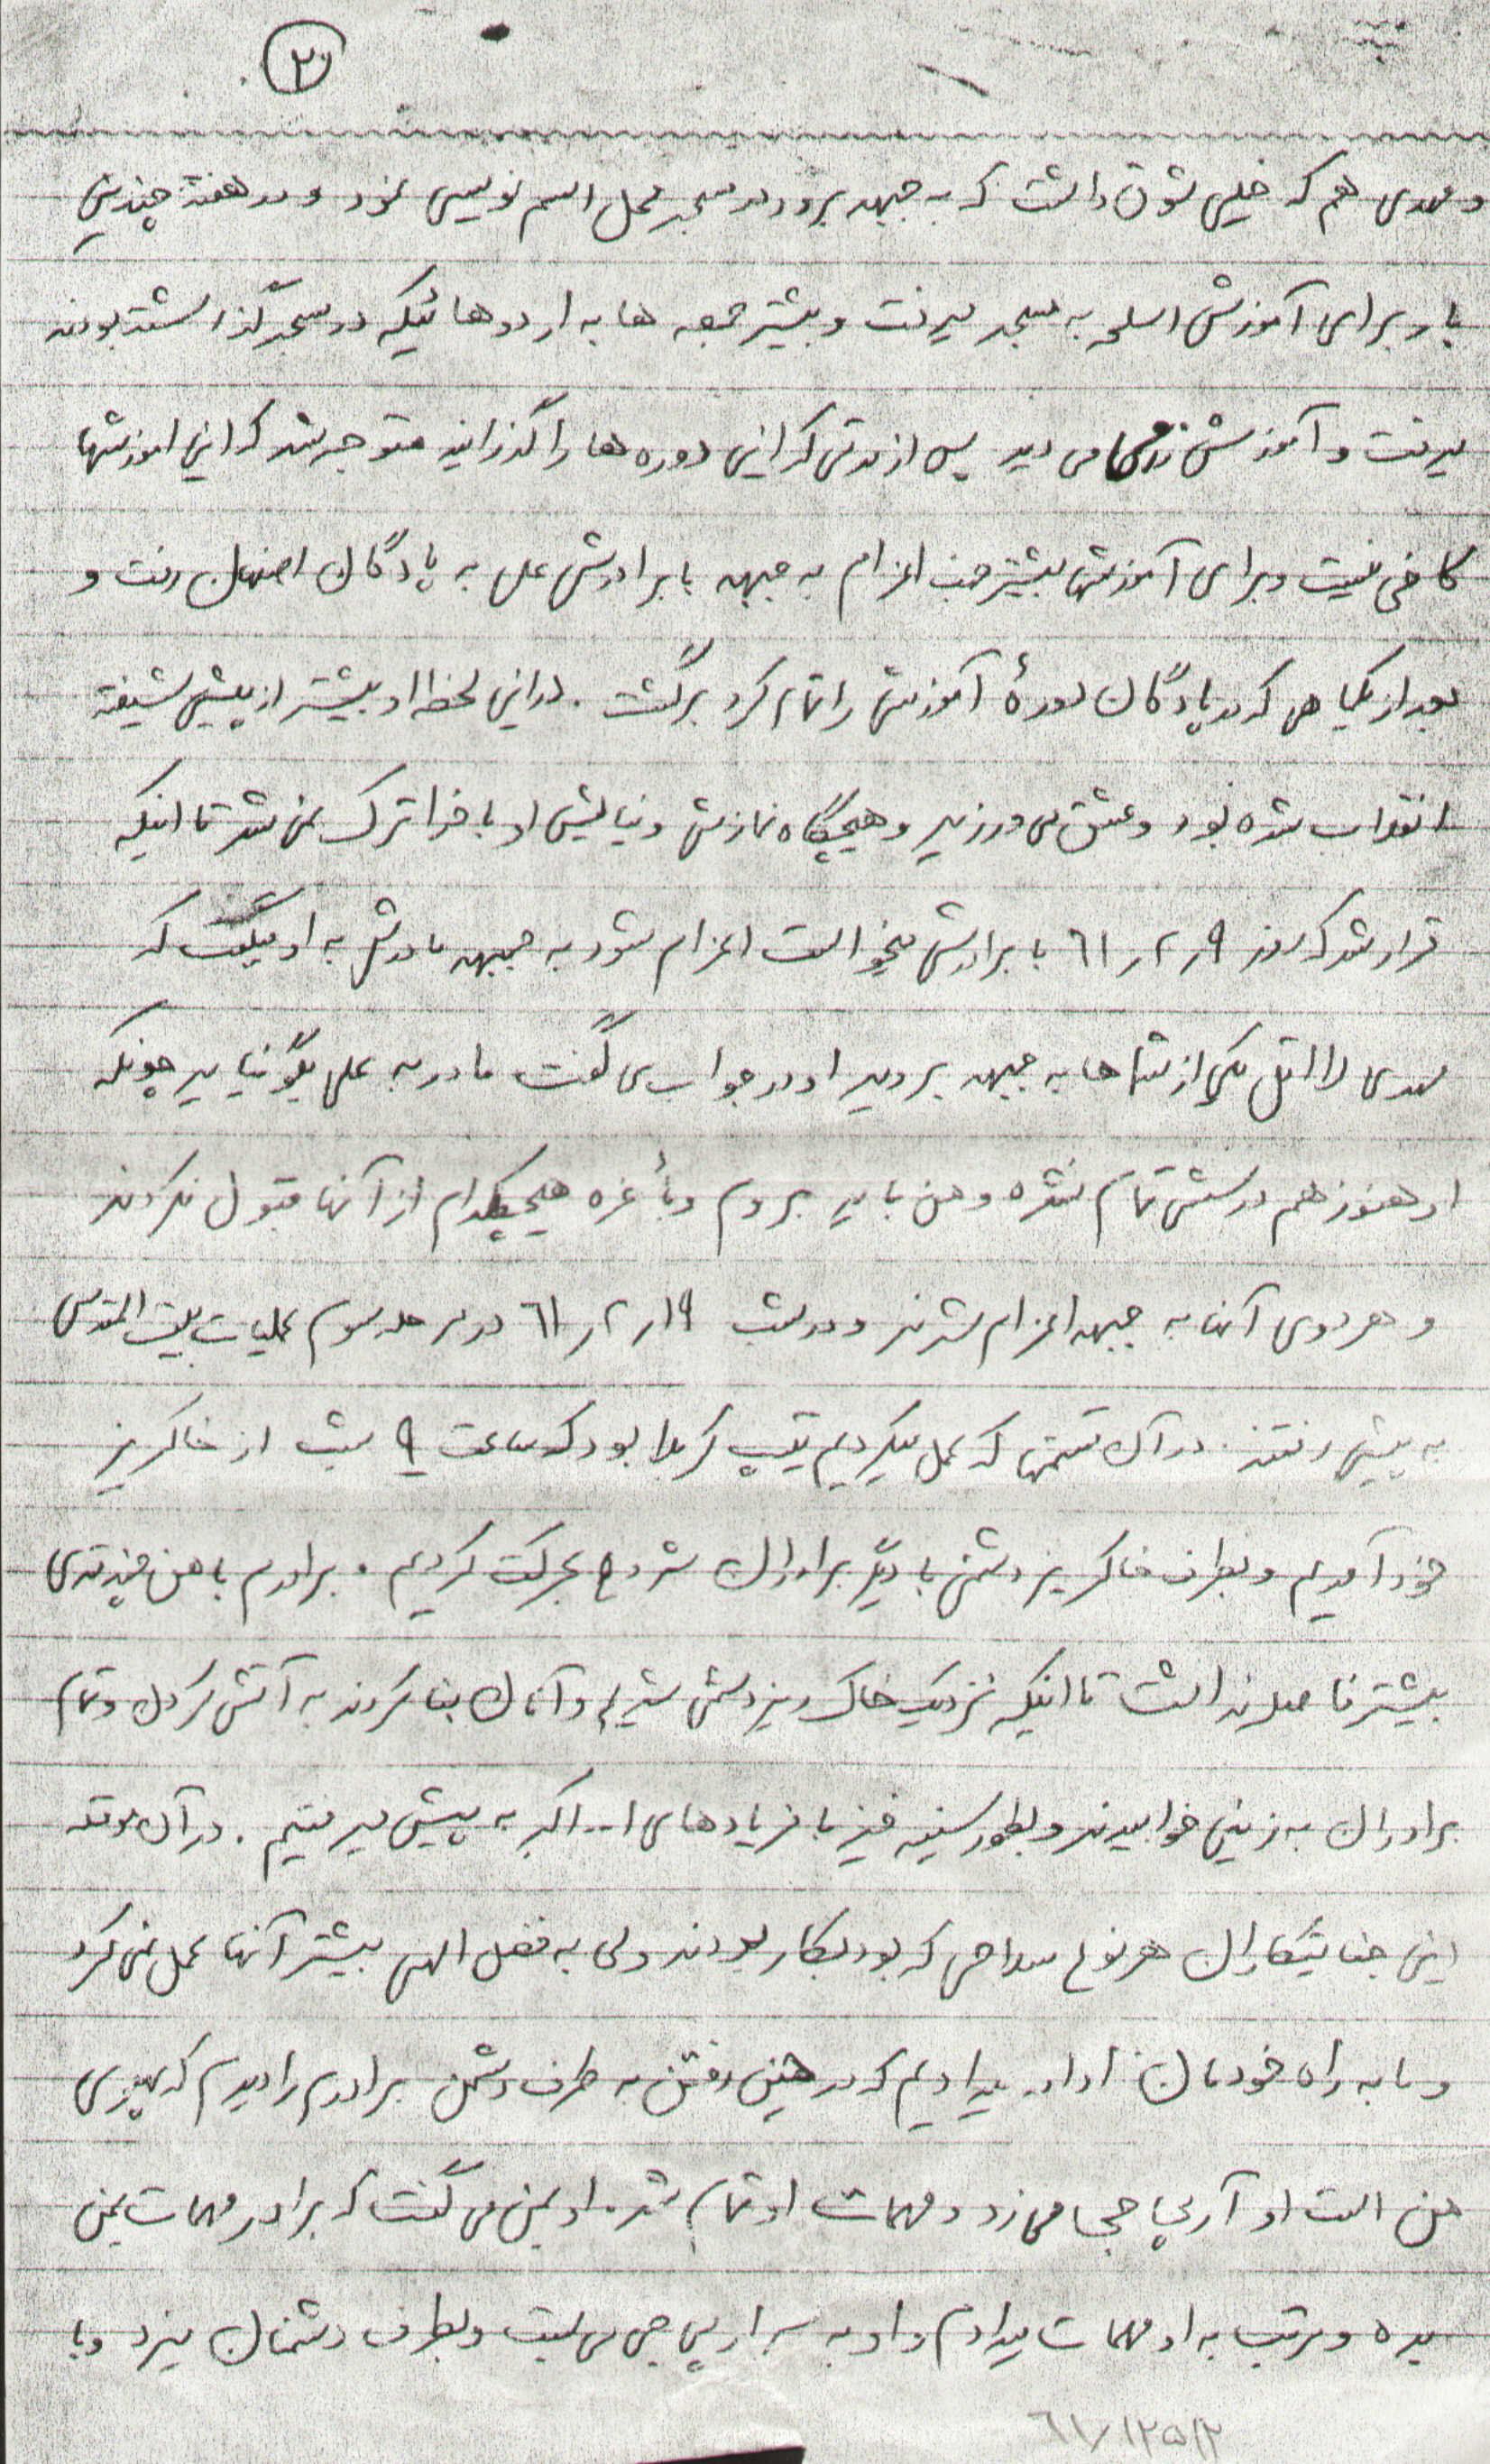 ۲
و مهدی هم که خیلی شوق داشت که به جبهه برود در مسجد محل اسم نویسی نمود و در هفته چندین
بار برای آموزش اسلحه به مسجد میرفت و بیشتر جمعه ها به اردوهائیکه در مسجد گذاشته بودند
میرفت و آموزش رزمی می دید پس از مدتی که این دوره ها را گذراند متوجه شد که این اموزشها
کافی نیست و برای آموزشهای بیشتر جهت اعزام به جبهه با برادرش علی به پادگان اصفهان رفت و
بعد از یکماهی که در پادگان دورهٔ آموزش را تمام کرد برگشت . در این لحظه او بیشتر از پیش شیفته
انقلاب شده بود و عشق می ورزید و هیچگاه نمازش و نیایش او با خدا ترک نمی شد تا اینکه
قرار شد که روز ۹ر۲ر۶۱ با برادرش میخواست اعزام شود به جبهه مادرش به او میگفت که
مهدی لااقل یکی از شماها به جبهه بروید او در جواب می گفت مادر به علی بگو نیاید چونکه
او هنوز هم درسش تمام نشده و من باید بروم و بأخره هیچکدام از آنها قبول نکردند
و هر دوی آنها به جبهه اعزام شدند و در شب ۱۹ر۲ر۶۱ در مرحله سوم عملیات بیت المقدس
به پیش رفتند . در آن قسمتی که عمل میکردیم تیپ کربلا بود که ساعت ۹ شب از خاکریز
خود آمدیم و بطرف خاکریز دشمن با دیگر برادران شروع بحرکت کردیم . برادرم با من چند قدمی
بیشتر فاصله نداشت تا اینکه نزدیک خاک ریز دشمن شدیم و آنان بنا کردند به آتش کردن و تمام
برادران به زمین خوابیدند و بطور سینه خیز با فریادهای ا... اکبر به پیش میرفتیم . در آن موقع
این جنایتکاران هر نوع سلاحی که بود بکار بودند ولی به فضل الهی بیشتر آنها عمل نمی کرد
و ما به راه خودمان ادامه میدادیم که در حین رفتن به طرف دشمن برادرم را دیدم که پهلوی
من است او آرپی جی می زد و مهمات او تمام شد . او بمن می گفت که برادر مهمات بمن
بده و مرتب به او مهمات میدادم و او به سر ارپی جی می بست و بطرف دشمنان میزد و با
۶۱/۱۲۵۱۲